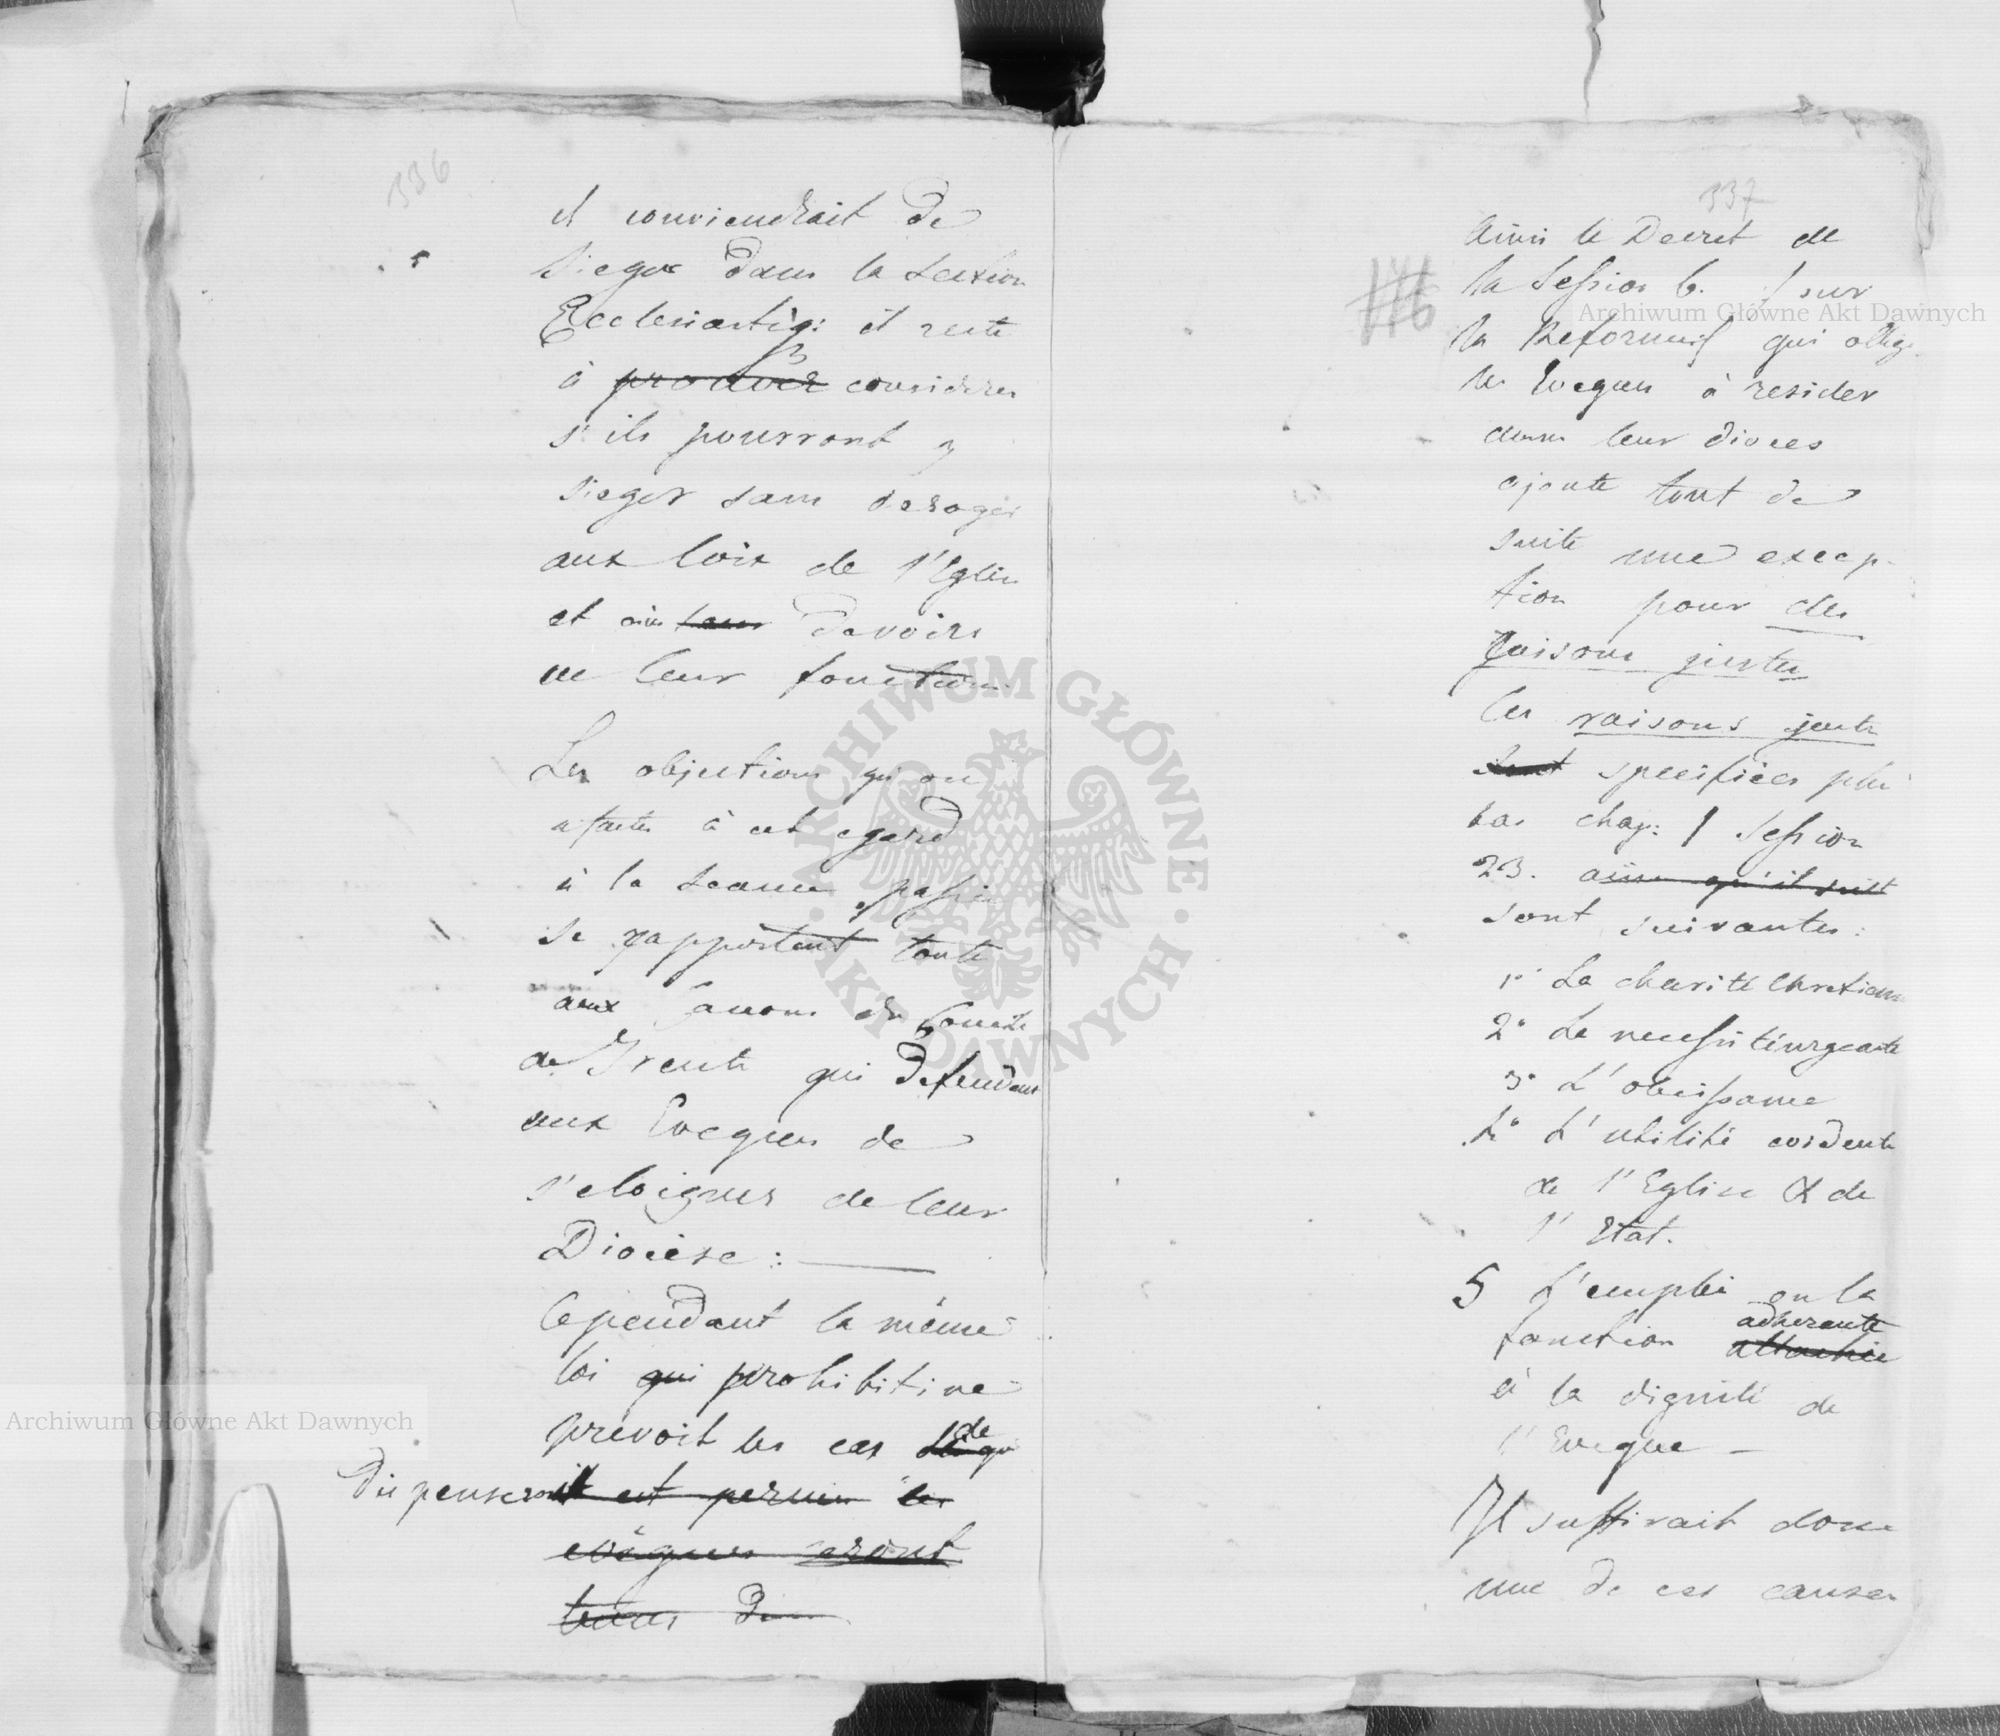 336
il conviendrait de
sieger dans la Section
Ecclesiastiq: il reste
à prouver considerer
s'ils pourront y
sieger sans deroger
aux loix de l'Eglise
et aux leurs devoirs
de leur fonctions.
Les objections qu'on
a faites à cet egard
à la seance passée
se rapportent toute
aux Canons du Concile
de Trente qui defendent
aux Eveques de
s'eloigner de leur
Diocèse :
Cependant la même
loi qui prohibitive
prevoit les cas de qui
Dispenseront il est permis les
evêques seront
337
Ainsi le Decret de
la Session 6. sur
la Reforme qui oblige
les Eveques à resider
dans leur dioces
ajoute tout de
suite une excep-
tion pour des
raisons justes
les raisons juste
sont specifiées plus
bas chap: 1 Session
23. ainsi qu'il suit
sont suivantes :
1° La charité Chretienne
2° La necessité urgeante
3° L'obeissance
4° L'utilité evidente
de l'Eglise & de
l'Etat.
5 L'emploi ou la
adherante
fonction attachée
à la dignité de
l'Eveque —
Il suffirait donc
une de ces causes
Archiwum Główne Akt Dawnych
Archiwum Główne Akt Dawnych
ARCHIWUM GŁÓWNE AKT DAWNYCH